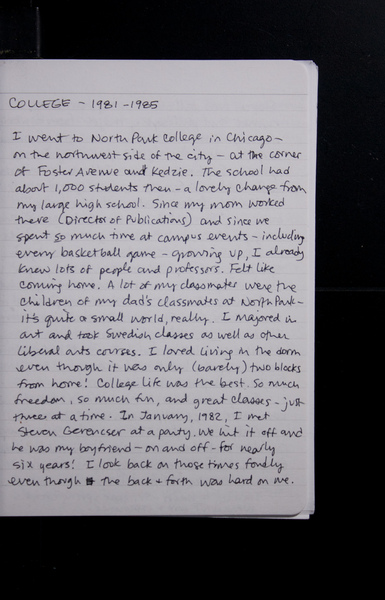 COLLEGE - 1981-1985
I went to North Park College in Chicago -
on the northwest side of the city - at the corner
of Foster Avenue and Kedzie. The school had
about 1,000 students then - a lovely change from
my large high school. Since my mom worked
there (Director of Publications) and since we
spent so much time at campus events - including
every basketball game - growing up, I already
knew lots of people and professors. Felt like
coming home. A lot of my classmates were the
children of my dad's classmates at North Park -
it's quite a small world, really. I majored in
art and took Swedish classes as well as other
liberal arts courses. I loved living in the dorm
even though it was only (barely) two blocks
from home! College life was the best. So much
freedom, so much fun, and great classes - just
three at a time. In January, 1982, I met
Steven Gerencser at a party. We hit it off and
he was my boyfriend - on and off - for nearly
six years! I look back on those times fondly
even though the back + forth was hard on me.